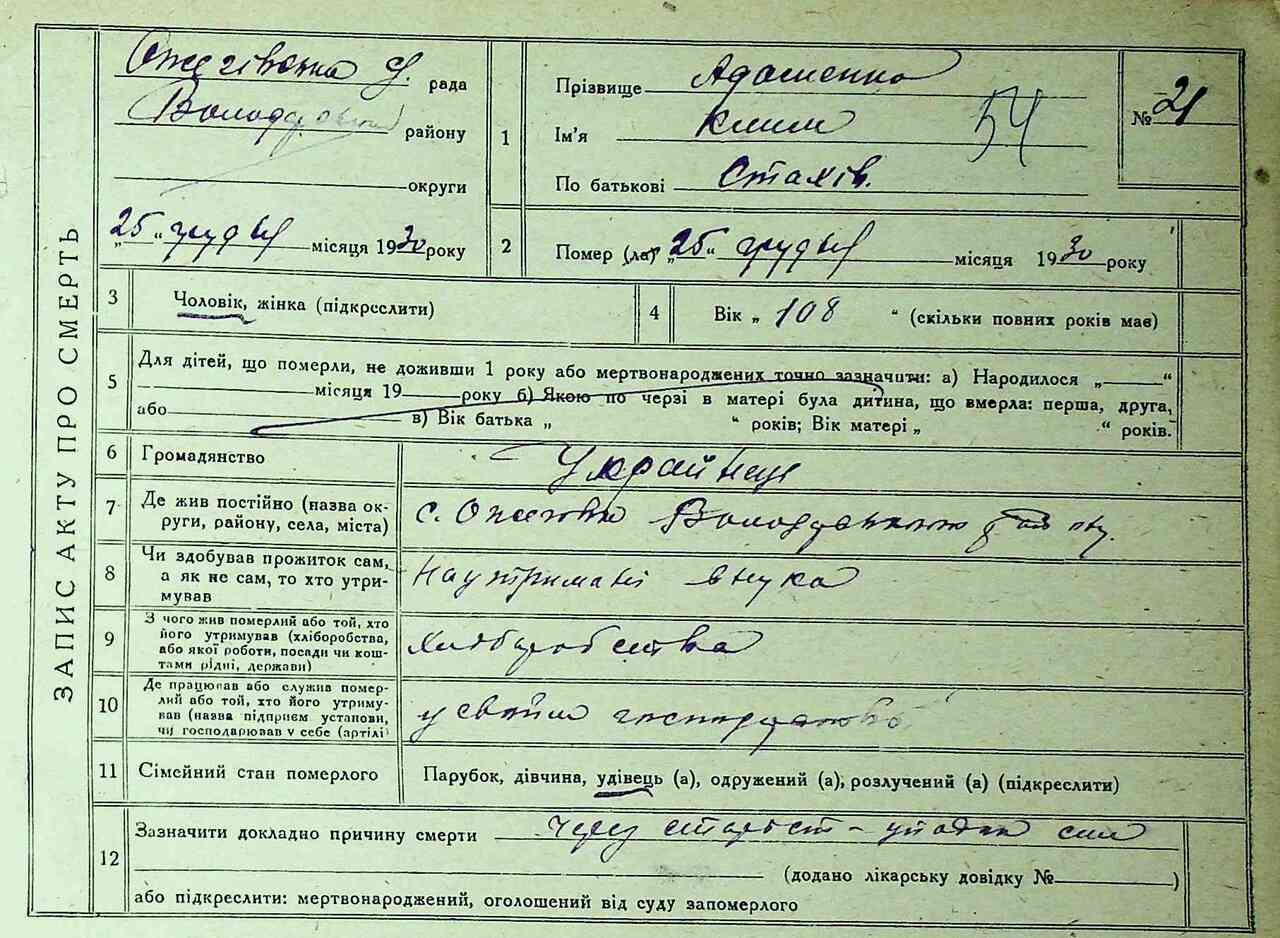 ЗАПИС АКТУ ПРО СМЕРТЬ
Ожегівська С. рада
Володарськ району
округи
„25“ грудня місяця 1930 року
1
Прізвище Адаменко
Ім'я Клим
54
По батькові Стахів.
№ 21
2
Помер (ла) „25“ грудня місяця 1930 року
3
Чоловік, жінка (підкреслити)
4
Вік „ 108 “ (скільки повних років має)
5
Для дітей, що померли, не доживши 1 року або мертвонароджених точно зазначити: а) Народилося „ “
місяця 19 року б) Якою по черзі в матері була дитина, що вмерла: перша, друга,
або в) Вік батька „ “ років; Вік матері „ “ років.
6
Громадянство
Українець
7
Де жив постійно (назва ок-
руги, району, села, міста)
с. Ожегівка Володарського району.
8
Чи здобував прожиток сам,
а як не сам, то хто утри-
мував
На утримані внука
9
З чого жив померлий або той, хто
його утримував (хліборобства,
або якої роботи, посади чи кош-
тами рідні, держави)
Хліборобства
10
Де працював або служив помер-
лий або той, хто його утриму-
вав (назва підприєм установи,
чи господарював у себе (артілі)
у своїм господарстві
11
Сімейний стан померлого
Парубок, дівчина, удівець (а), одружений (а), розлучений (а) (підкреслити)
12
Зазначити докладно причину смерти Через старост - упадок сил
(додано лікарську довідку № )
або підкреслити: мертвонароджений, оголошений від суду запомерлого